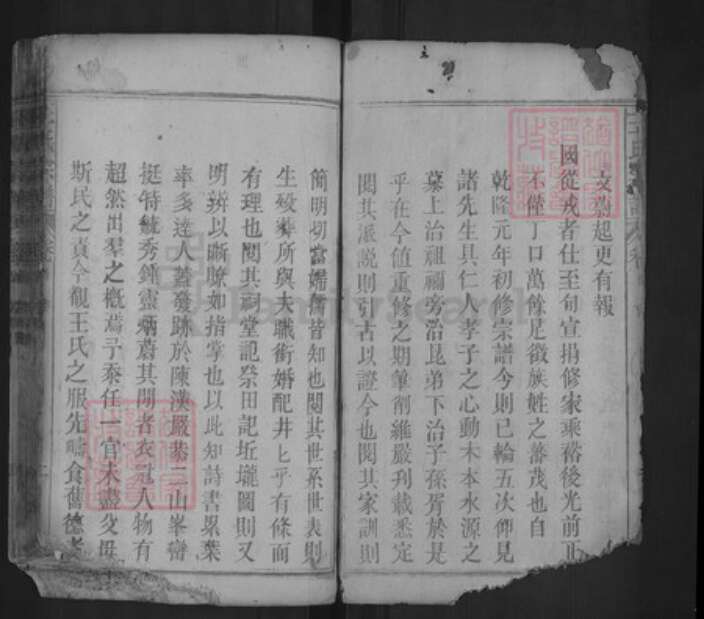 文勳起更有報
國從戎者仕至旬宣捐修家乘裕後光前正
不僅丁口萬餘足徵族姓之蕃茂也自
乾隆元年初修宗譜今則已輪五次仰見
諸先生具仁人孝子之心動木本水源之
慕上治祖禰旁治昆弟下治子孫胥於是
乎在今值重修之期筆削維嚴刋裁悉定
閱其派說則引古以證今也閱其家訓則
簡明切當婦孺皆知也閱其世系世表則
生歿葬所與夫職銜婚配井井乎有條而
有理也閱其祠堂記祭田記坵壠圖則又
明辨以晰瞭如指掌也以此知詩書累葉
率多達人蓋發跡於陳漢嚴恭三山峯巒
挺特毓秀鍾靈炳蔚其間者衣冠人物有
超然出羣之概焉予忝任一官未盡父毋
斯民之責今觀王氏之服先疇食舊德者
FamilySearch